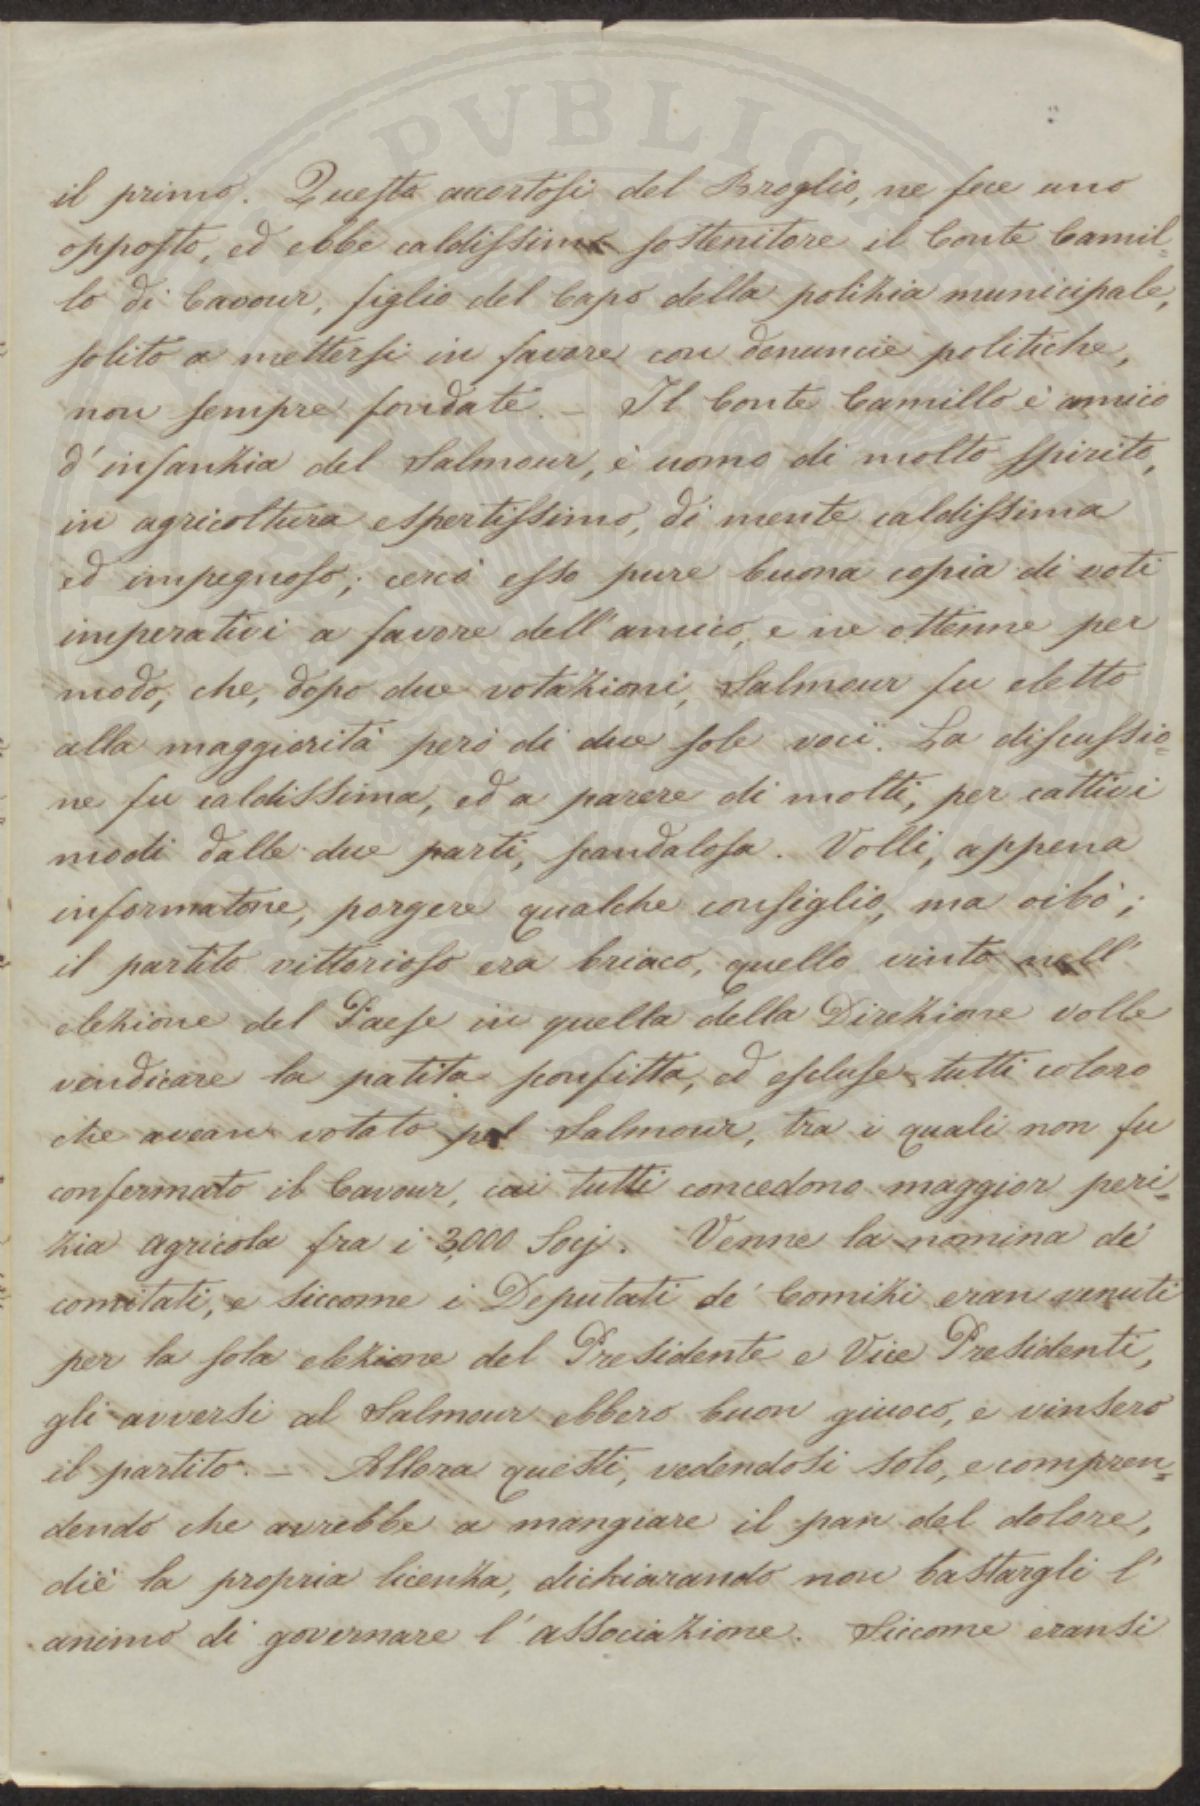 PVBLICAE
il primo. Questo accortosi del Broglio, ne fece uno
opposto, ed ebbe caldissimo sostenitore il Conte Camil=
lo di Cavour, figlio del Capo della polizia municipale,
solito a mettersi in favore con denuncie politiche,
non sempre fondate. – Il Conte Camillo è amico
d'infanzia del Salmour, è uomo di molto spirito,
in agricoltura espertissimo, di mente caldissima
ed impegnoso; cercò esso pure buona copia di voti
imperativi a favore dell'amico, e ne ottenne per
modo, che, dopo due votazioni, Salmour fu eletto
alla maggiorità però di due sole voci. La discussio=
ne fu caldissima, ed a parere di molti, per cattivi
modi dalle due parti, scandalosa. Volli, appena
informatone, porgere qualche consiglio, ma oibò;
il partito vittorioso era briaco, quello vinto nell'
elezione del Paese in quella della Direzione volle
vendicare la patita sconfitta, ed escluse tutti coloro
che avean votato pel Salmour, tra i quali non fu
confermato il Cavour, cui tutti concedono maggior peri=
zia agricola fra i 3,000 Socj. Venne la nomina de'
comitati, e siccome i Deputati de' Comizi eran venuti
per la sola elezione del Presidente e Vice Presidenti,
gli avversi al Salmour ebbero buon giuoco, e vinsero
il partito. – Allora questi, vedendosi solo, e compren=
dendo che avrebbe a mangiare il pan del dolore,
diè la propria licenza, dichiarando non bastargli l'
animo di governare l'associazione. Siccome eransi